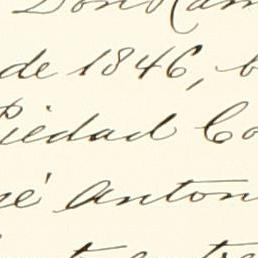 Don Ram
de 1846, b
Piedad Co
sé Anton